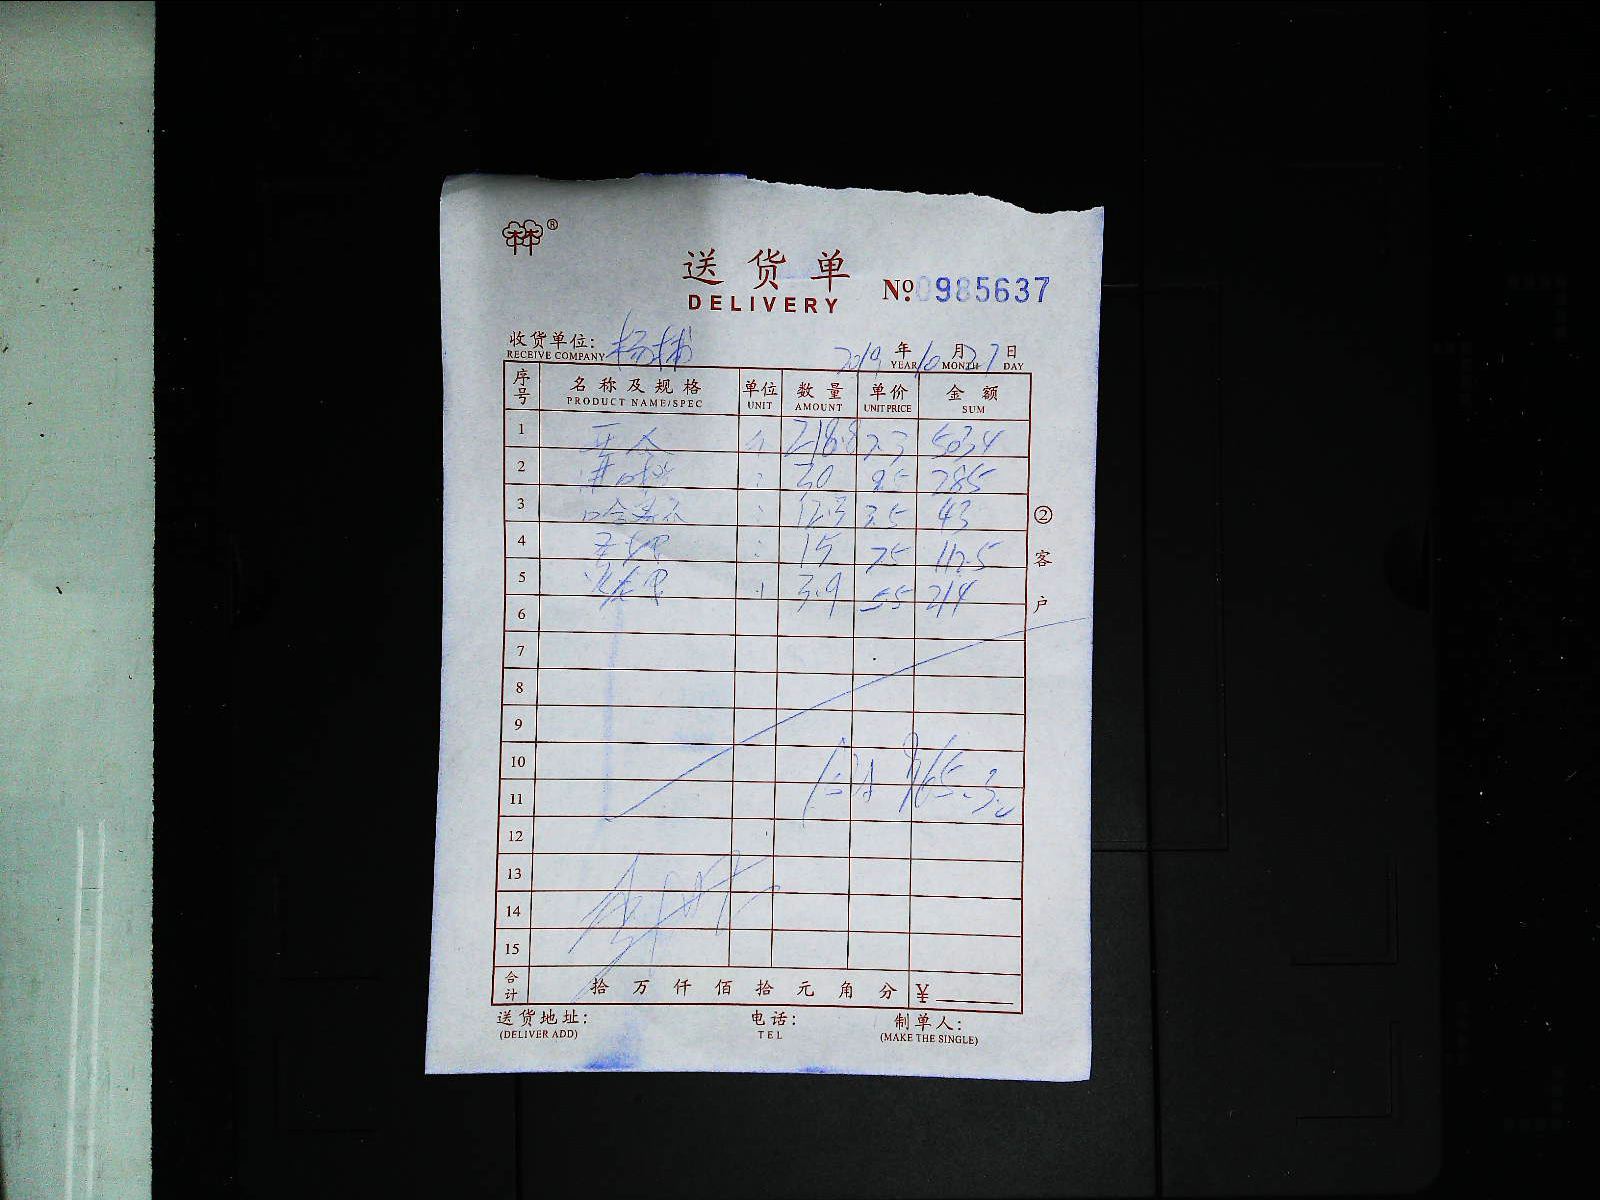 送货单
DELIVERY
№ 0985637
收货单位: 杨梅 2019 年 10 月 27 日
RECEIVE COMPANY YEAR MONTH DAY
序号 名称及规格 单位 数量 单价 金额
PRODUCT NAME/SPEC UNIT AMOUNT UNIT PRICE SUM
1 218.8 2.3 503.4
2 30 9.5 285
3 12.3 3.5 43
4 15 7.5 112.5
5 3.9 5.5 21.4
6
7
8
9
10 合计 965.3元
11
12
13
14
15
合计 拾 万 仟 佰 拾 元 角 分 ¥
送货地址: 电话: 制单人:
(DELIVER ADD) TEL (MAKE THE SINGLE)
② 客户